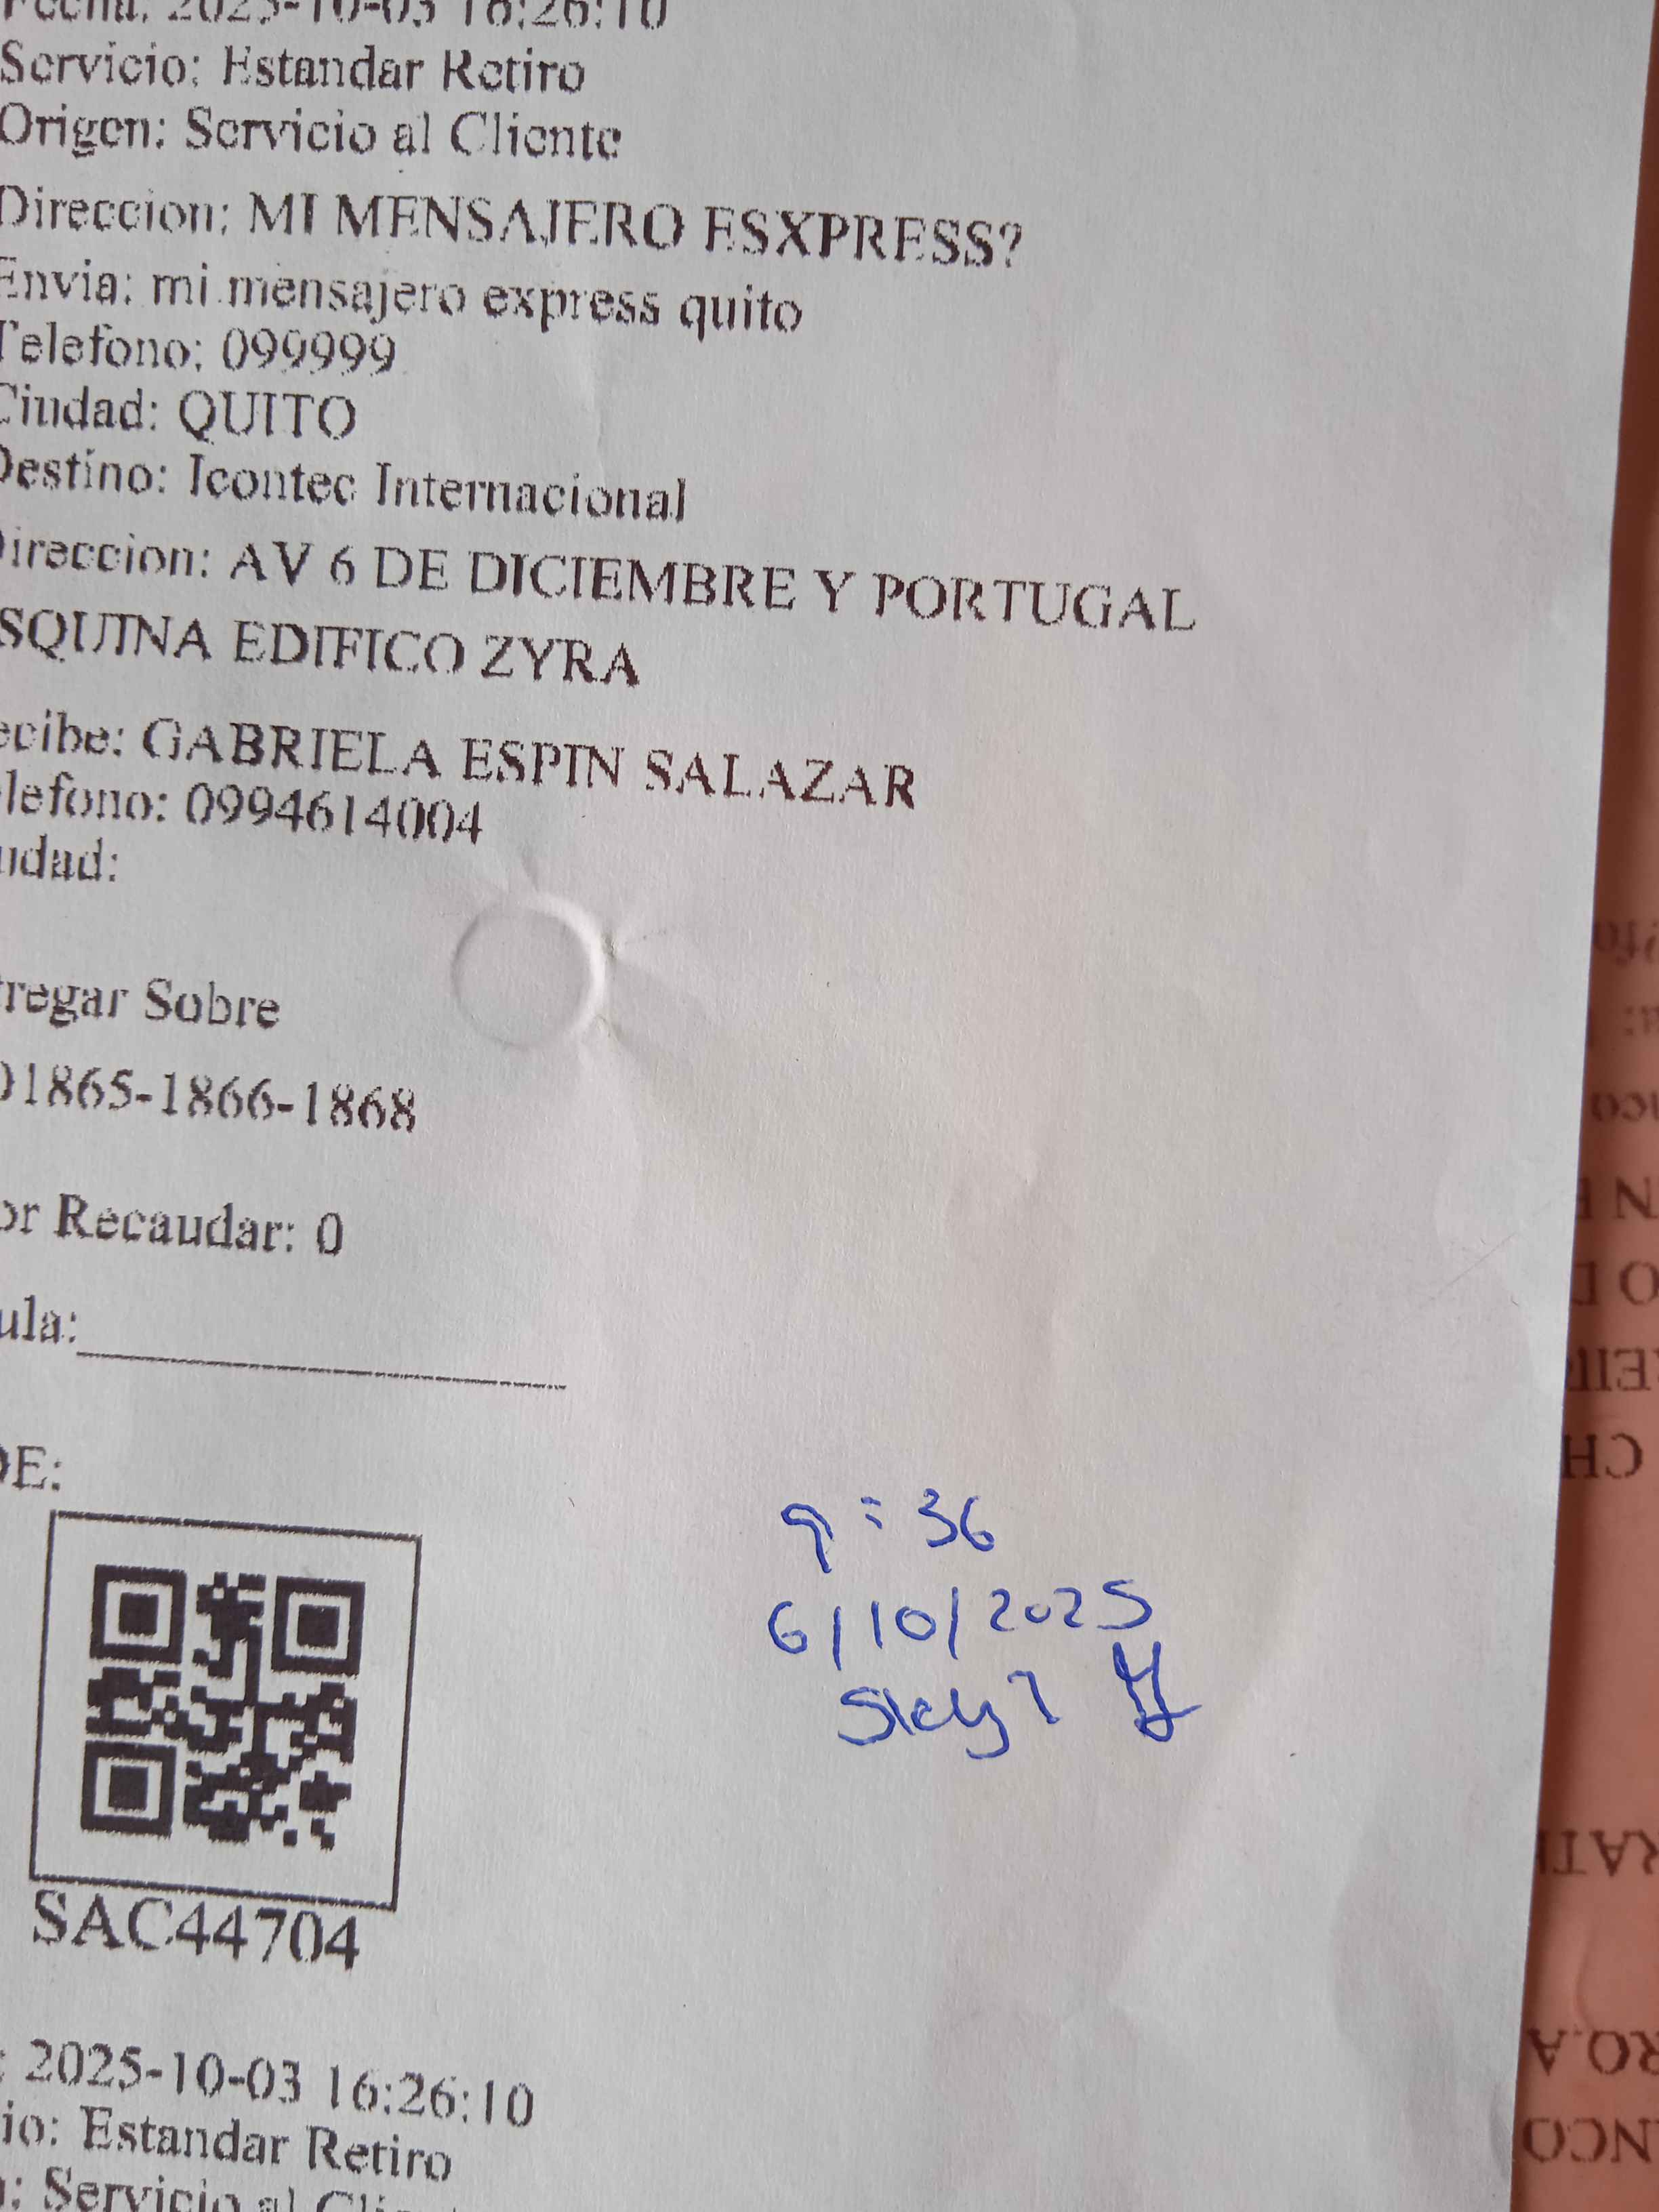 Fecha: 2025-10-03 16:26:10
Servicio: Estandar Retiro
Origen: Servicio al Cliente
Direccion: MI MENSAJERO ESXPRESS?
Envia: mi mensajero express quito
Telefono: 099999
Ciudad: QUITO
Destino: Icontec Internacional
Direccion: AV 6 DE DICIEMBRE Y PORTUGAL
SQUINA EDIFICO ZYRA
ecibe: GABRIELA ESPIN SALAZAR
lefono: 0994614004
udad:
tregar Sobre
01865-1866-1868
or Recaudar: 0
ula:
DE:
9:36
6/10/2025
SAC44704
: 2025-10-03 16:26:10
io: Estandar Retiro
n: Servicio al